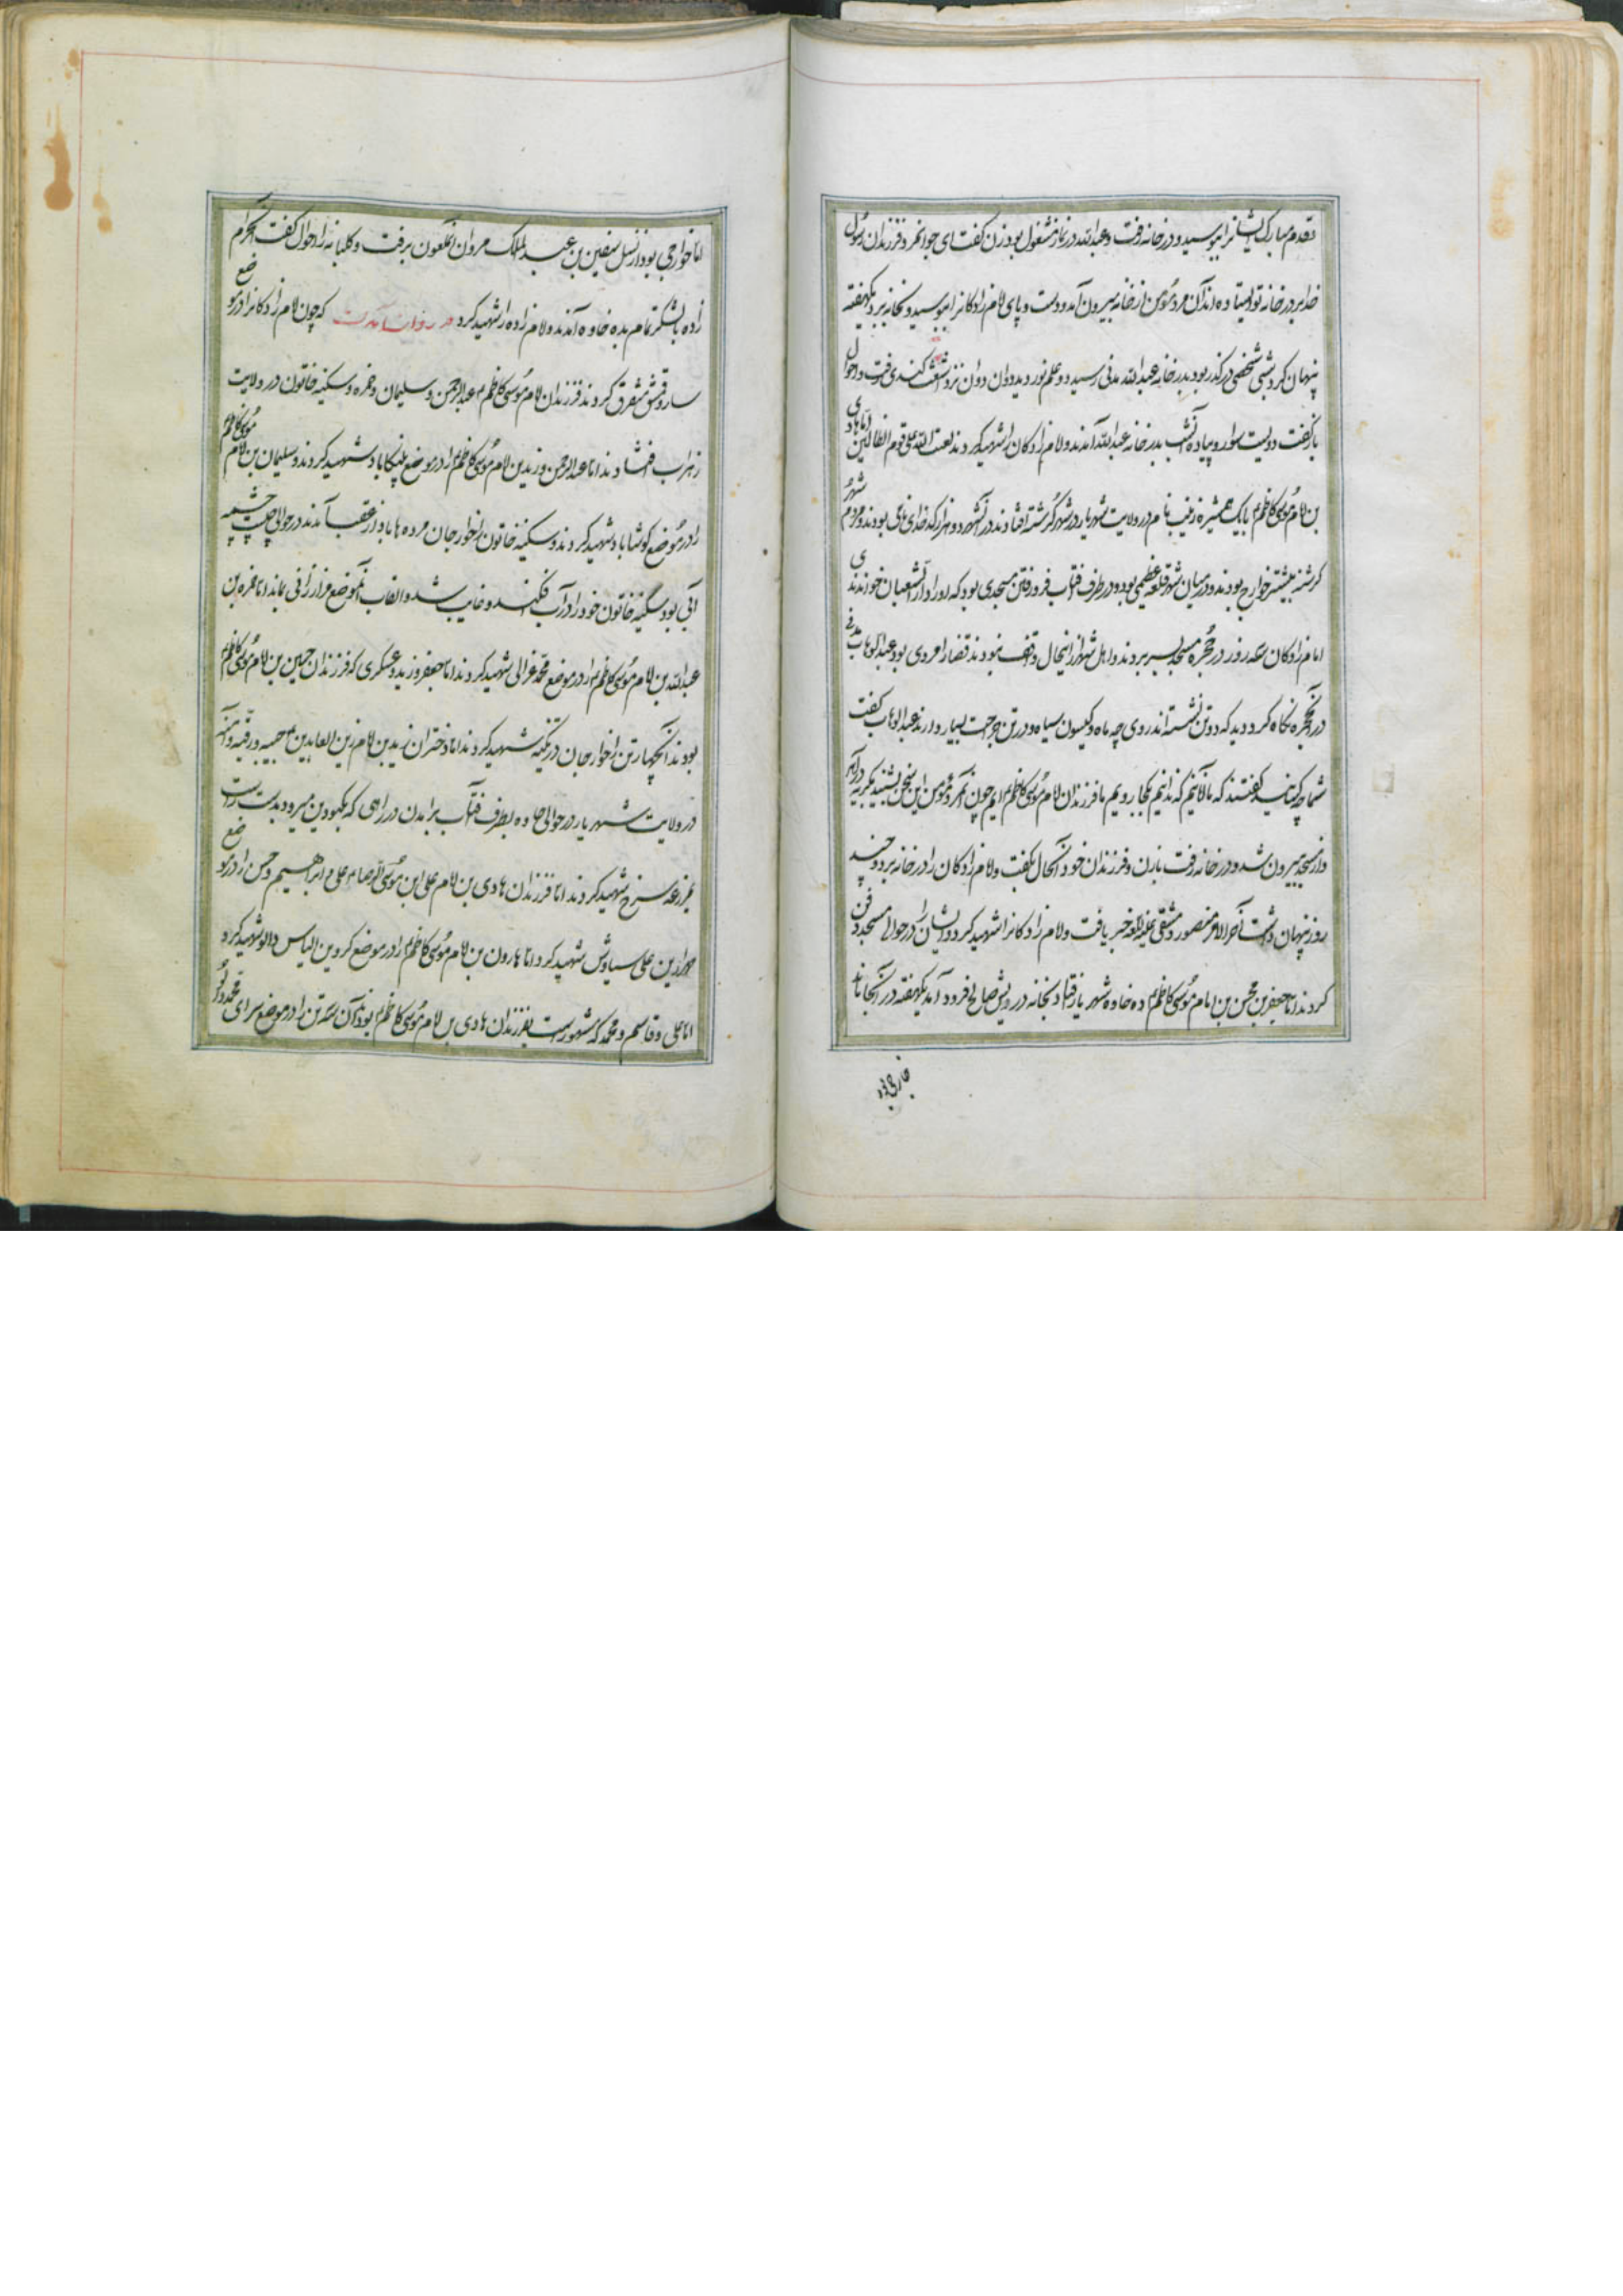 و قدم مبارک ایشانرا ببوسید و در خانه رفت و عبدالله در نماز مشغول بود زن گفت ای جوانمرد فرزندان رسول
خدا بر در خانه تو ایستاده اند آن مرد مؤمن از خانه بیرون آمد و دست و پای امام زادکانرا ببوسید و بخانه برد یکهفته
پنهان کرد شبی شخصی در گذر بود بدر خانه عبدالله مدنی رسید دو علم نور دید دوان دوان نزد اشعث کندی رفت و احوال
باز گفت دویست سوار و پیاده آنشب بدر خانه عبدالله آمدند و امام زادکان را شهید کردند لعنت الله علی قوم الظالمین اما هادی
بن امام موسی کاظم با یک همشیره زینب نام در ولایت شهریار در شهر کرشته افتادند در آنشهر دو هزار کدخدای نامی بودند و مردم شهر
کرشته بیشتر خوارج بودند و در میان شهر قلعه عظیمی بود و در طرف آفتاب فرو رفتن مسجدی بود که او را دار الشعبان خواندندی
امام زادکان سه روز در حجره مسجد بسر بردند و اهل شهر از اینحال واقف نبودند قضا را مردی بود عبدالوهاب مدنی
در آنحجره نگاه کرد دید که دو تن نشسته اند روی چه ماه و گیسوی سیاه و در تن جراحت بسیار دارند عبدالوهاب گفت
شما چه کسانید گفتند که ما آنانیم که ندانیم بکجا رویم ما فرزندان امام موسی کاظم ایم چون آنمرد مؤمن این سخن بشنید بگریه در آمد
و از مسجد بیرون شد و در خانه رفت با زن و فرزندان خود آنحال بگفت و امام زادکان را در خانه برد و چند
روز پنهان داشت آخر الامر منصور دمشقی علیه اللعنه خبر یافت و امام زادکانرا شهید کرد و ایشان را در حوالی مسجد دفن
کردند اما جعفر بن محسن بن امام موسی کاظم ده خاوه شهریار افتاد بخانه درویش صالح فرود آمد یکهفته در آنجا ماند
اما خوارجی بود از نسل سفین بن عبدالملک مروان آنملعون برفت و کلبانه را احوال گفت آنحرام
زاده با لشکر تمام بده خاوه آمدند و امام زاده را شهید کرد در روایت آمدست که چون امام زادکانرا در موضع
ساروقمش متفرق کردند فرزندان امام موسی کاظم عبدالرحمن و سلیمان و حمزه و سکینه خاتون در ولایت
زهراب افتادند اما عبدالرحمن و زید بن امام موسی کاظم را در موضع شهید کردند و سلیمان بن امام موسی کاظم
را در موضع کوشاباد شهید کردند و سکینه خاتون را خوارجان مرده ماباد از عقب آمدند در حوالی چشمه
آبی بود سکینه خاتون خود را در آب افکند و غایب شد و آنموضع مزار بماند اما حمزه بن
عبدالله بن امام موسی کاظم را در موضع محمد غزالی شهید کردند اما جعفر و زید و عسکری که فرزندان حسین بن امام موسی کاظم
بودند آنچهار تن را خوارجان در تکیه شهید کردند اما دختران زید بن امام زین العابدین حبیبه و رقیه و آمنه
در ولایت شهریار در حوالی جاوه بطرف آفتاب برآمدن در راهی که بکبودین میرود بدست راست
بمزرعه سرخ شهید کردند اما فرزندان هادی بن امام علی ابن موسی الرضا علی و ابراهیم و حسن را در موضع
علی سیاوش شهید کرد اما هارون بن امام موسی کاظم را در موضع کردین الیاس دالو شهید کرد
اما علی و قاسم و محمد که مشهور است بفرزندان هادی بن امام موسی کاظم بودند آن سه تن را در موضع سرای محمد